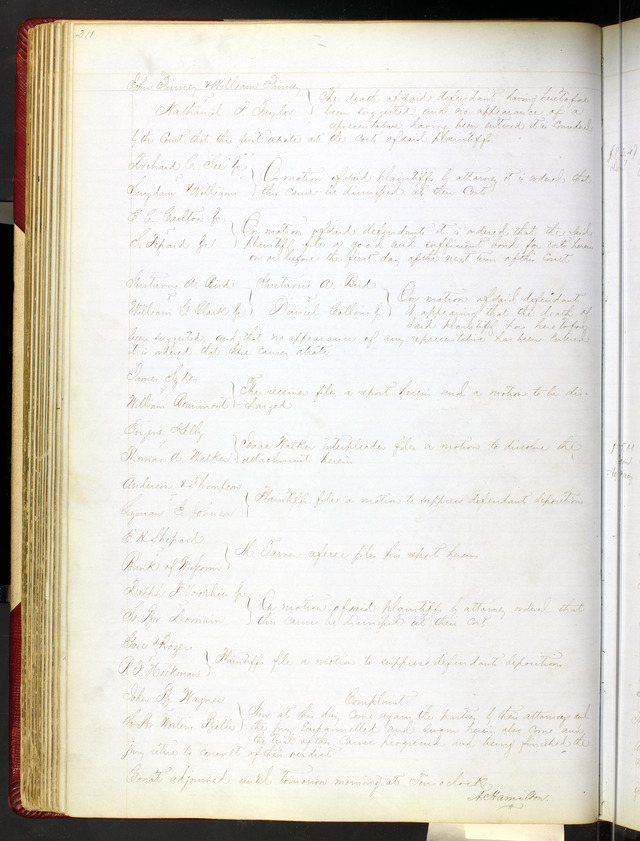 211
John Finney & William Finney
vs
Nathaniel J. Taylor
The death of said defendant having heretofore
been suggested and no appearance of a
representative having been entered it is considered
by the Court that this suit abate at the cost of said plaintiffs
Richard C.
vs
Lunydam & Williams
On motion of said plaintiffs by attorney it is ordered that
this cause be dismissed at their Cost
E. C. Carlton Jr
vs
On motion of said defendants it is ordered that the said
plaintiff file a good and sufficient bond for costs herein
on or before the first day of the next term of this Court
Gustavus A. Bird
vs
William G Clark
Gustavus A. Bird
vs
Daniel Collins
On motion of said defendants
it appearing that the death of
said plaintiff has heretofore
been suggested and that no appearance of any representative has been entered
it is ordered that these causes abate
James Sykes
vs
William Beaumont
The receiver files a report herein and a motion to be dis-
charged
Eugene Kelly
vs
Thomas A. Walker
Isaac Walker interpleader files a motion to dissolve the
attachment herein
Anderson & Thompson
vs
Lyman E Johnson
Plaintiffs file a motion to suppress defendant depositions
E K Shepard
vs
Bank of Missouri
M. Tarver referee files his report herein
Ralph
vs
St Bt Domain
On motion of said plaintiffs by attorney ordered that
this cause be dismissed at their Cost
Gore & Rogers
vs
Hickman
Plaintiffs file a motion to suppress defendant depositions
John B. Wagner
vs
St Bt Western Belle
Complaint
Now at this day come again the parties by their attorneys and
the jury empannelled and sworn herein also come and
the trial of this Cause progressed and being finished the
jury retire to consult of their verdict
Court adjourned until tomorrow morning at Ten oclock
A. Hamilton